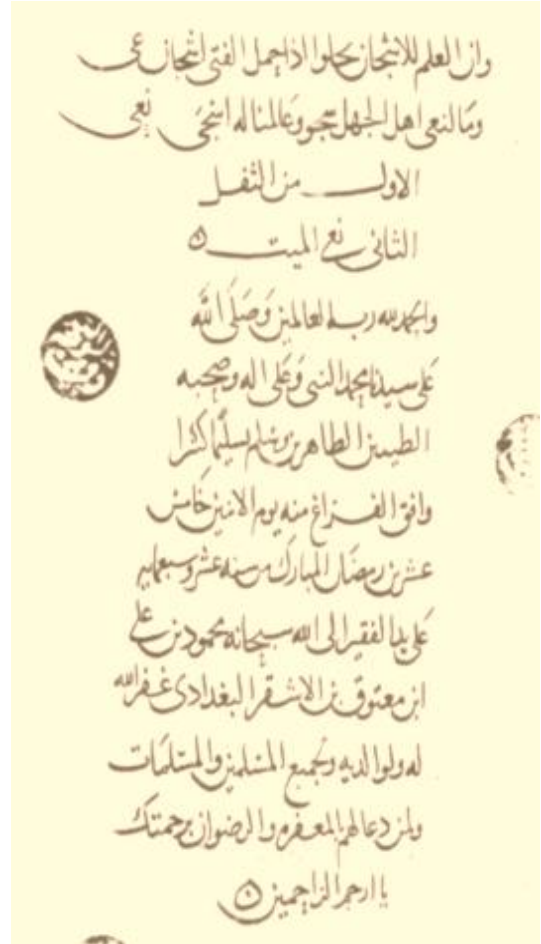 وان العلم للانثجان يحلوا اذا جمل الفتى اثجان عى
وما لنعى اهل الجهل سجو وعالمنا له اشجى نعى
الاول من الثقل
الثانى نعى الميت ه
والحمد لله رب العالمين وصلى الله
على سيدنا محمد النبى وعلى اله وصحبه
الطيبين الطاهرين وسلم تسليما كثيرا
وافق الفراغ منه يوم الاثنين خامس
عشرين رمضان المبارك من سنه عشر وسبعمايه
على يد الفقير الى الله سبحانه محمود بن على
ابن معتوق بن الاشقر البغدادى غفر الله
له ولوالديه ولجميع المسلمين والمسلمات
ولمن دعا لهم بالمغفره والرضوان برحمتك
يا ارحم الراحمين ه